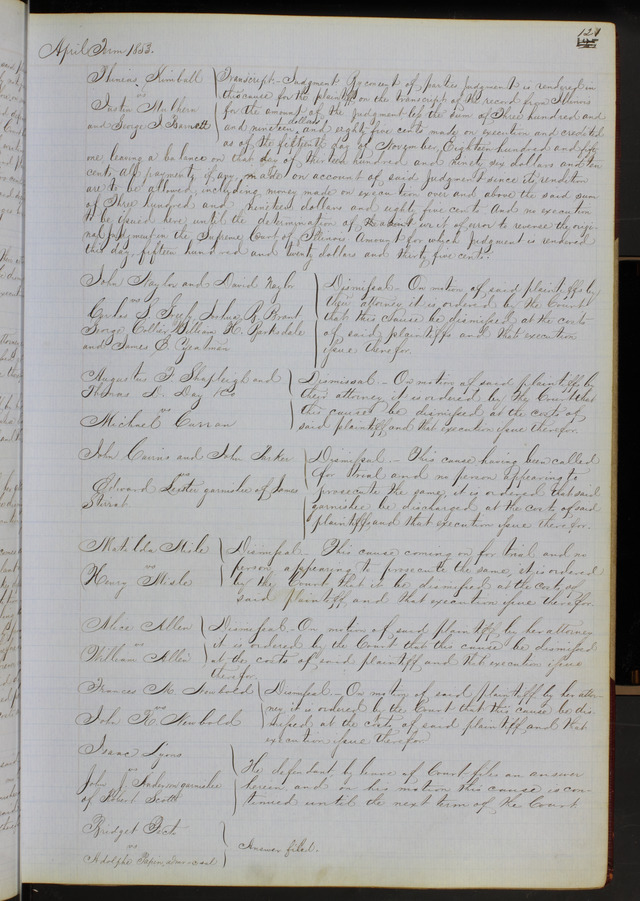 121
April Term 1853.
Phineas Kimball
vs
Justin
and George I Barnett
Transcript - Judgment By consent of parties judgment is rendered in
this cause for the plaintiff on the transcript of the record from Illinois
for the amount of the judgment to the sum of Three hundred and
and nineteen dollars, and eighty five cents made on execution and credited
as of the fifteenth day of November, Eighteen hundred and fifty
one, leaving a balance on that day of thirteen hundred and ninety six dollars and ten
cents, all payments if any, made on account of said Judgment since its rendition
are to be allowed, including money made on execution over and above the said sum
of Three hundred and nineteen dollars and eighty five cents And no execution
to be issued here, until the determination of the writ of error to reverse the origi-
nal judgment in the Supreme Court of Illinois Amount for which judgment is rendered
this day, fifteen hundred and twenty dollars and thirty five cents.
John Taylor and David Taylor
vs
Joshua B. Brant
George Collier, William H. Barksdale
and James E. Yeatman
Dismissal - On motion of said plaintiffs by
their attorney it is ordered by the Court
that this cause be dismissed at the costs
of said plaintiffs and that execution
issue therefor.
Augustus F. Shapleigh and
Thomas D. Day & Co
vs
Michael Curran
Dismissal - On motion of said plaintiffs by
their attorney it is ordered by the Court that
this cause be dismissed at the costs of
said plaintiff and that execution issue therefor.
John Cavins and John Parker
vs
Edward Lester garnishee of James
Dismissal - This cause having been called
for trial and no person appearing to
prosecute the same, it is ordered that said
garnishee be discharged at the costs of said
plaintiff, and that execution issue therefor.
Matilda Misle
vs
Henry Misle
Dismissal - This cause coming on for trial and no
person appearing to prosecute the same, it is ordered
by the Court that it be dismissed at the costs of
said plaintiff and that execution issue therefor.
Alice Allen
vs
William Allen
Dismissal - On motion of said plaintiff by her attorney
it is ordered by the Court that this cause be dismissed
at the costs of said plaintiff and that execution issue
therefor.
Frances M. Newbold
vs
John H. Newbold
Dismissal - On motion of said plaintiff by her attor-
ney it is ordered by the Court that this cause be dis-
missed at the costs of said plaintiff and that
execution issue therefor
Isaac Lyons
vs
John J. Anderson garnishee
of Robert Scott
The defendant by leave of Court files an answer
herein and on his motion this cause is con-
tinued until the next term of the Court
Bridget Peck
vs
Adolphe Papin
Answer filed.